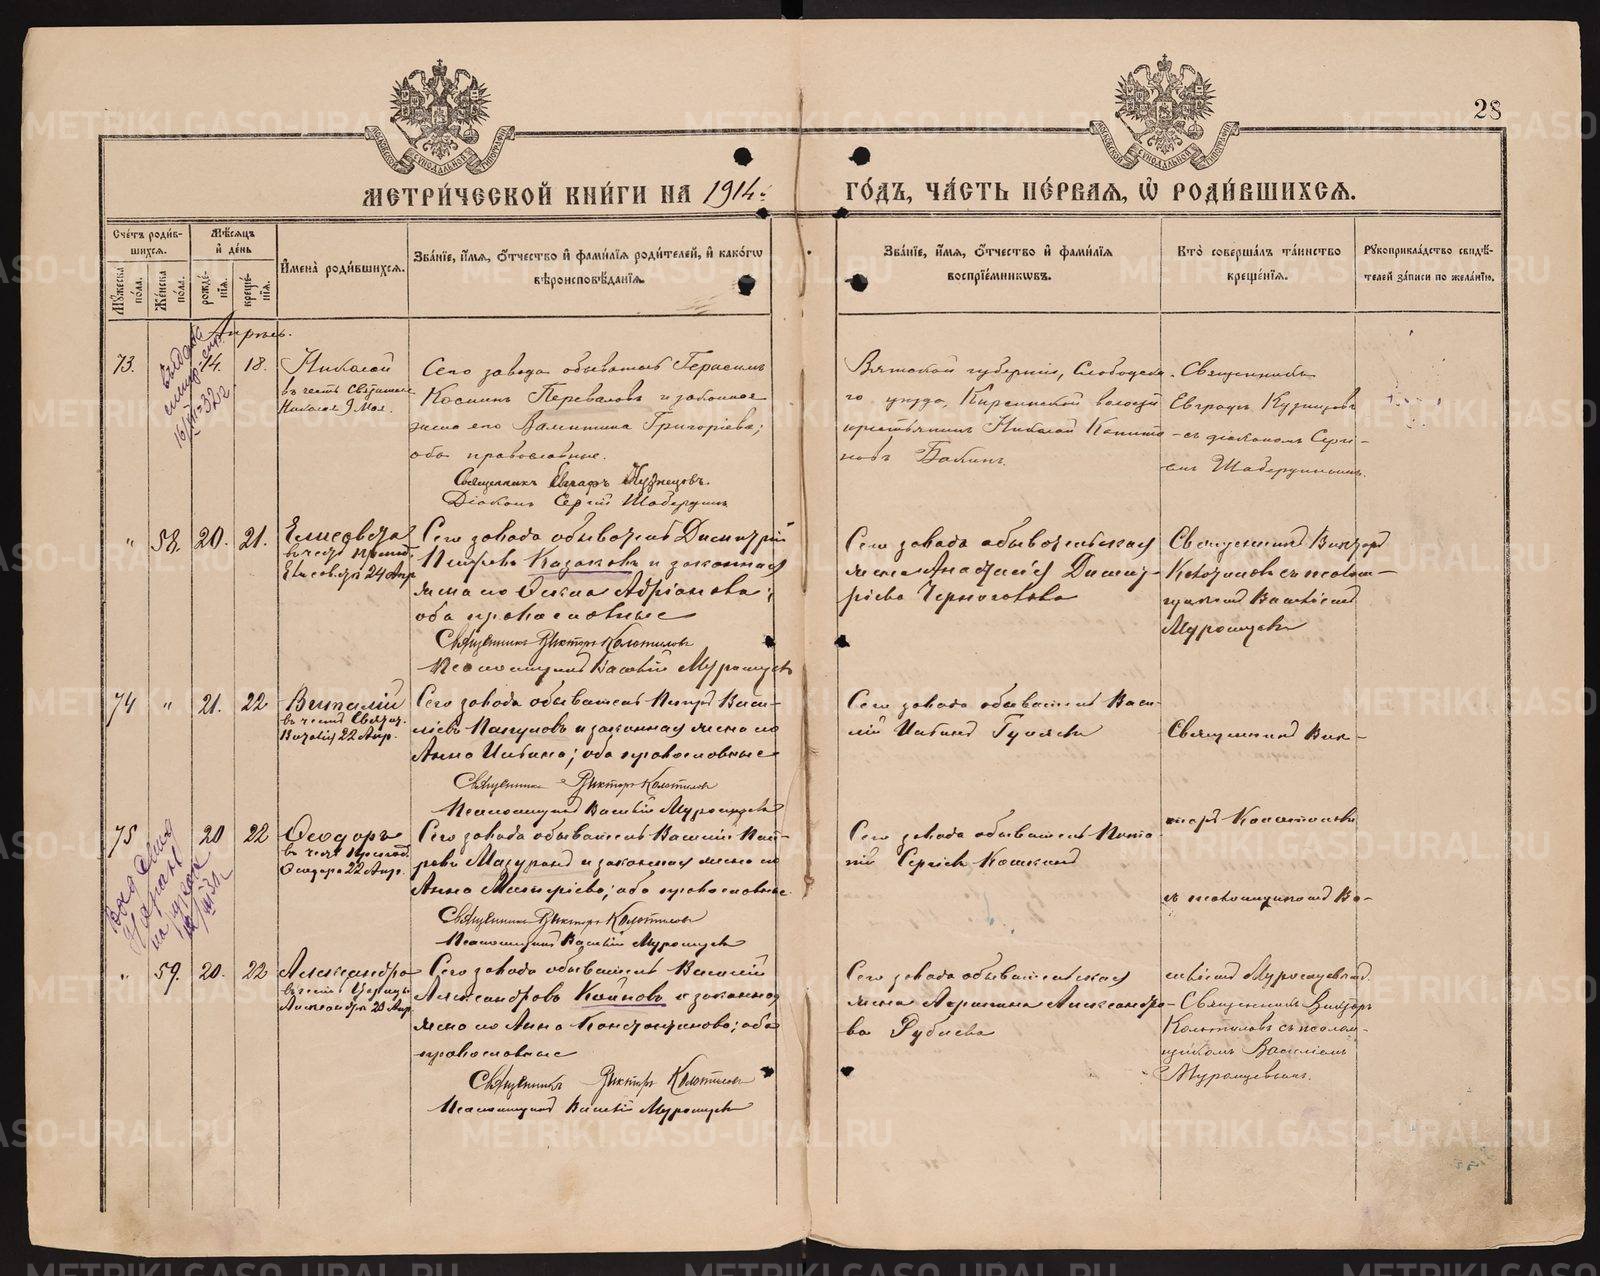 28
МЕТРИ́ЧЕСКОЙ КНИ́ГИ НА 1914 ГО́ДЪ, ЧА́СТЬ ПЕ́РВАЯ, Ѡ РОДИ́ВШИХСѦ.
Сче́тъ роди́вшихся.
Мѣ́сяцъ и де́нь
Му́жеска по́ла.
Же́нска по́ла.
рожде́нія.
креще́нія.
Имена̀ роди́вшихся.
Зва́ніе, и́мя, о́тчество и фами́лія роди́телей, и како́гѡ
вѣроисповѣ́данія.
Зва́ніе, и́мя, о́тчество и фами́лія
воспріе́мниковъ.
Кто̀ соверша́лъ та́инство
креще́нія.
Рукоприкла́дство свидѣ́-
телей за́писи по жела́нію.
Апрѣль.
73. 14. 18. Николай
въ честь Святителя
Николая 9 Мая.
Сего завода обыватель Герасимъ
Косминъ Переваловъ и законная
жена его Валентина Григоріева;
оба православные.
Священникъ Евграфъ Кузнецовъ.
Діаконъ Сергій
Вятской губерніи, Слободска-
го уѣзда, Кирсинской волости
крестьянинъ Николай
Бакинъ.
Священникъ
Евграфъ Кузнецовъ
съ діакономъ Серги-
емъ
" 58. 20. 21. Елисавета
въ честь препод.
Елисаветы 24 Апр.
Сего завода обыватель Димитрій
Петровъ Казаковъ и законная
жена его Ѳекла Адріанова;
оба православные
Священникъ Викторъ Колотиловъ
Псаломщикъ Василій Муромцевъ
Сего завода обывательская
жена Анастасія Димит-
ріева Черноголова
Священникъ Викторъ
Колотиловъ съ псалом-
щикомъ Василіемъ
Муромцевымъ
74 " 21. 22 Виталій
въ честь Святаго
Виталія 22 Апр.
Сего завода обыватель Петръ Васи-
ліевъ и законная жена его
Анна оба православные
Священникъ Викторъ Колотиловъ
Псаломщикъ Василій Муромцевъ
Сего завода обыватель Васи-
лій
Священникъ Вик-
75 20 22 Ѳеодоръ
въ честь препод.
Ѳеодора 22 Апр.
Сего завода обыватель Василій Пет-
ровъ и законная жена его
Анна оба православные.
Священникъ Викторъ Колотиловъ
Псаломщикъ Василій Муромцевъ
Сего завода обыватель
Сергіевъ Кошкинъ
торъ Колотиловъ
съ псаломщикомъ Ва-
" 59. 20. 22 Александра
въ честь Царицы
Александры 23 Апр.
Сего завода обыватель Василій
Александровъ Койновъ и законная
жена его Анна Константинова; оба
православные
Священникъ Викторъ Колотиловъ
Псаломщикъ Василій Муромцевъ
Сего завода обывательская
жена Акрипина Александро-
ва Рубцева
силіемъ Муромцевымъ
Священникъ Викторъ
Колотиловъ съ псалом-
щикомъ Василіемъ
Муромцевымъ.
METRIKI.GASO-URAL.RU